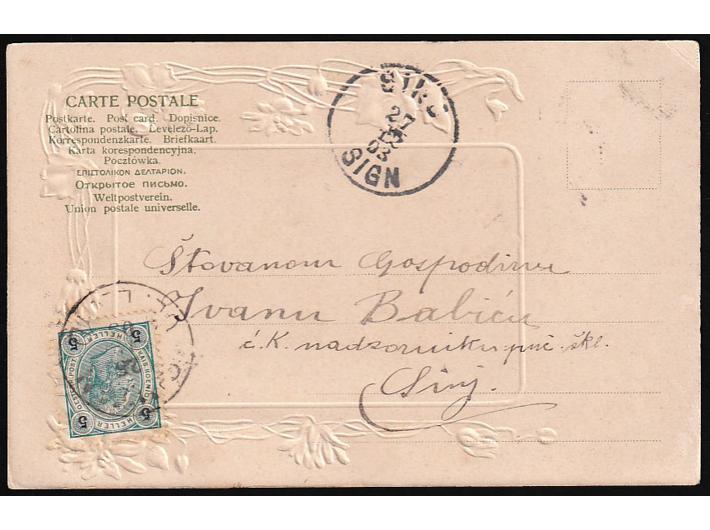 CARTE POSTALE
Postkarte. Post card. Dopisnice.
Cartolina postale. Levelező-Lap.
Korrespondenzkarte. Briefkaart.
Karta korespondencyjna.
Pocztówka.
ΕΠΙΣΤΟΛΙΚΟΝ ΔΕΛΤΑΡΙΟΝ.
Открытое письмо.
Weltpostverein.
Union postale universelle.
27
03
SIGN
Štovanom Gospodinu
Ivanu Babiću
ć. K. nadzorniku puč. škl.
Sinj.
5 HELLER 5
5 HELLER 5